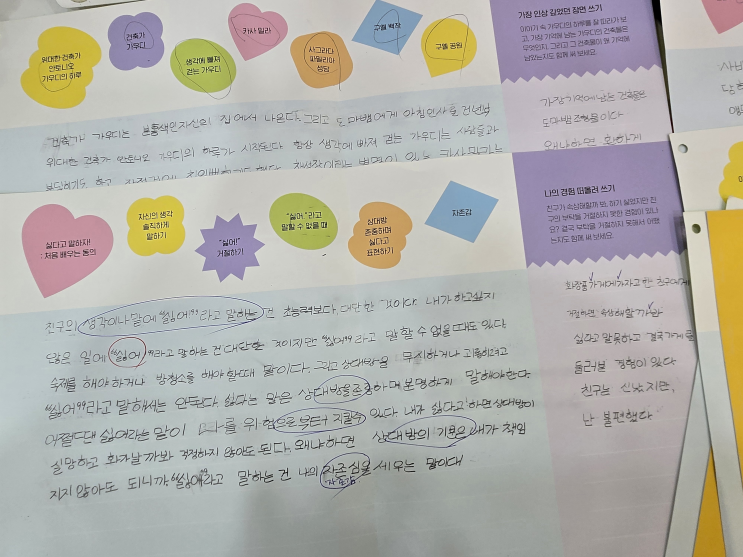 위대한 건축가
안토니오
가우디의 하루
건축가
가우디
생각에 빠져
걷는 가우디
카사 밀라
사그라다
파밀리아
성당
구엘 백작
구엘 공원
가장 인상 깊었던 장면 쓰기
이야기 속 가우디의 하루를 잘 따라가 보
고, 가장 기억에 남는 가우디의 건축물은
무엇인지, 그리고 그 건축물이 왜 기억에
남았는지도 함께 써 보세요.
건축가 가우디는 보통색인자신의 집에서 나온다. 그리고 도마뱀에게 아침인사를 건넨
위대한 건축가 안토니오 가우디의 하루가 시작된다 항상 생각에 빠져 걷는 가우디는 사람들과
가장 기억에 남는 건축물은
도마뱀 건축물이다
왜냐하면 화려하게
싫다고 말하자!
: 처음 배우는 동의
자신의 생각
솔직하게
말하기
"싫어!"
거절하기
"싫어."라고
말할 수 없을 때
상대방
존중하며
싫다고
표현하기
자존감
나의 경험 떠올려 쓰기
친구가 속상해할까 봐, 하기 싫었지만 친
구의 부탁을 거절하지 못한 경험이 있나
요? 결국 부탁을 거절하지 못해서 어땠
는지도 함께 써 보세요.
친구의 생각이나 말에 "싫어"라고 말하는 건 초능력보다. 대단한 것이다. 내가 하고싶지
않은 일에 "싫어"라고 말하는 건 대단한 것이지만 "싫어"라고 말할 수 없을 때도 있다
숙제를 해야 하거나 방청소를 해야 할때 말이다. 그리고 상대방을 무시하거나 괴롭히려고
"싫어"라고 말해서는 안된다. 싫다는 말은 상대방을 존중하며 분명하게 말해야한다.
어쩔때 싫어라는 말이 나를 위험으로 부터 지킬수 있다. 내가 싫다고 하면 상대방이
실망하고 화가날까봐 걱정하지 않아도 된다. 왜냐하면 상대방의 기분은 내가 책임
지지 않아도 되니까 "싫어"라고 말하는 건 나의 자존심을 세우는 말이다
자존감
화장품가게에가자고한 친구에게
거절하면 속상해할까봐
싫다고 말못하고 결국 가게를
둘러보는 경험이 있다
친구는 신났지만,
난 불편했다